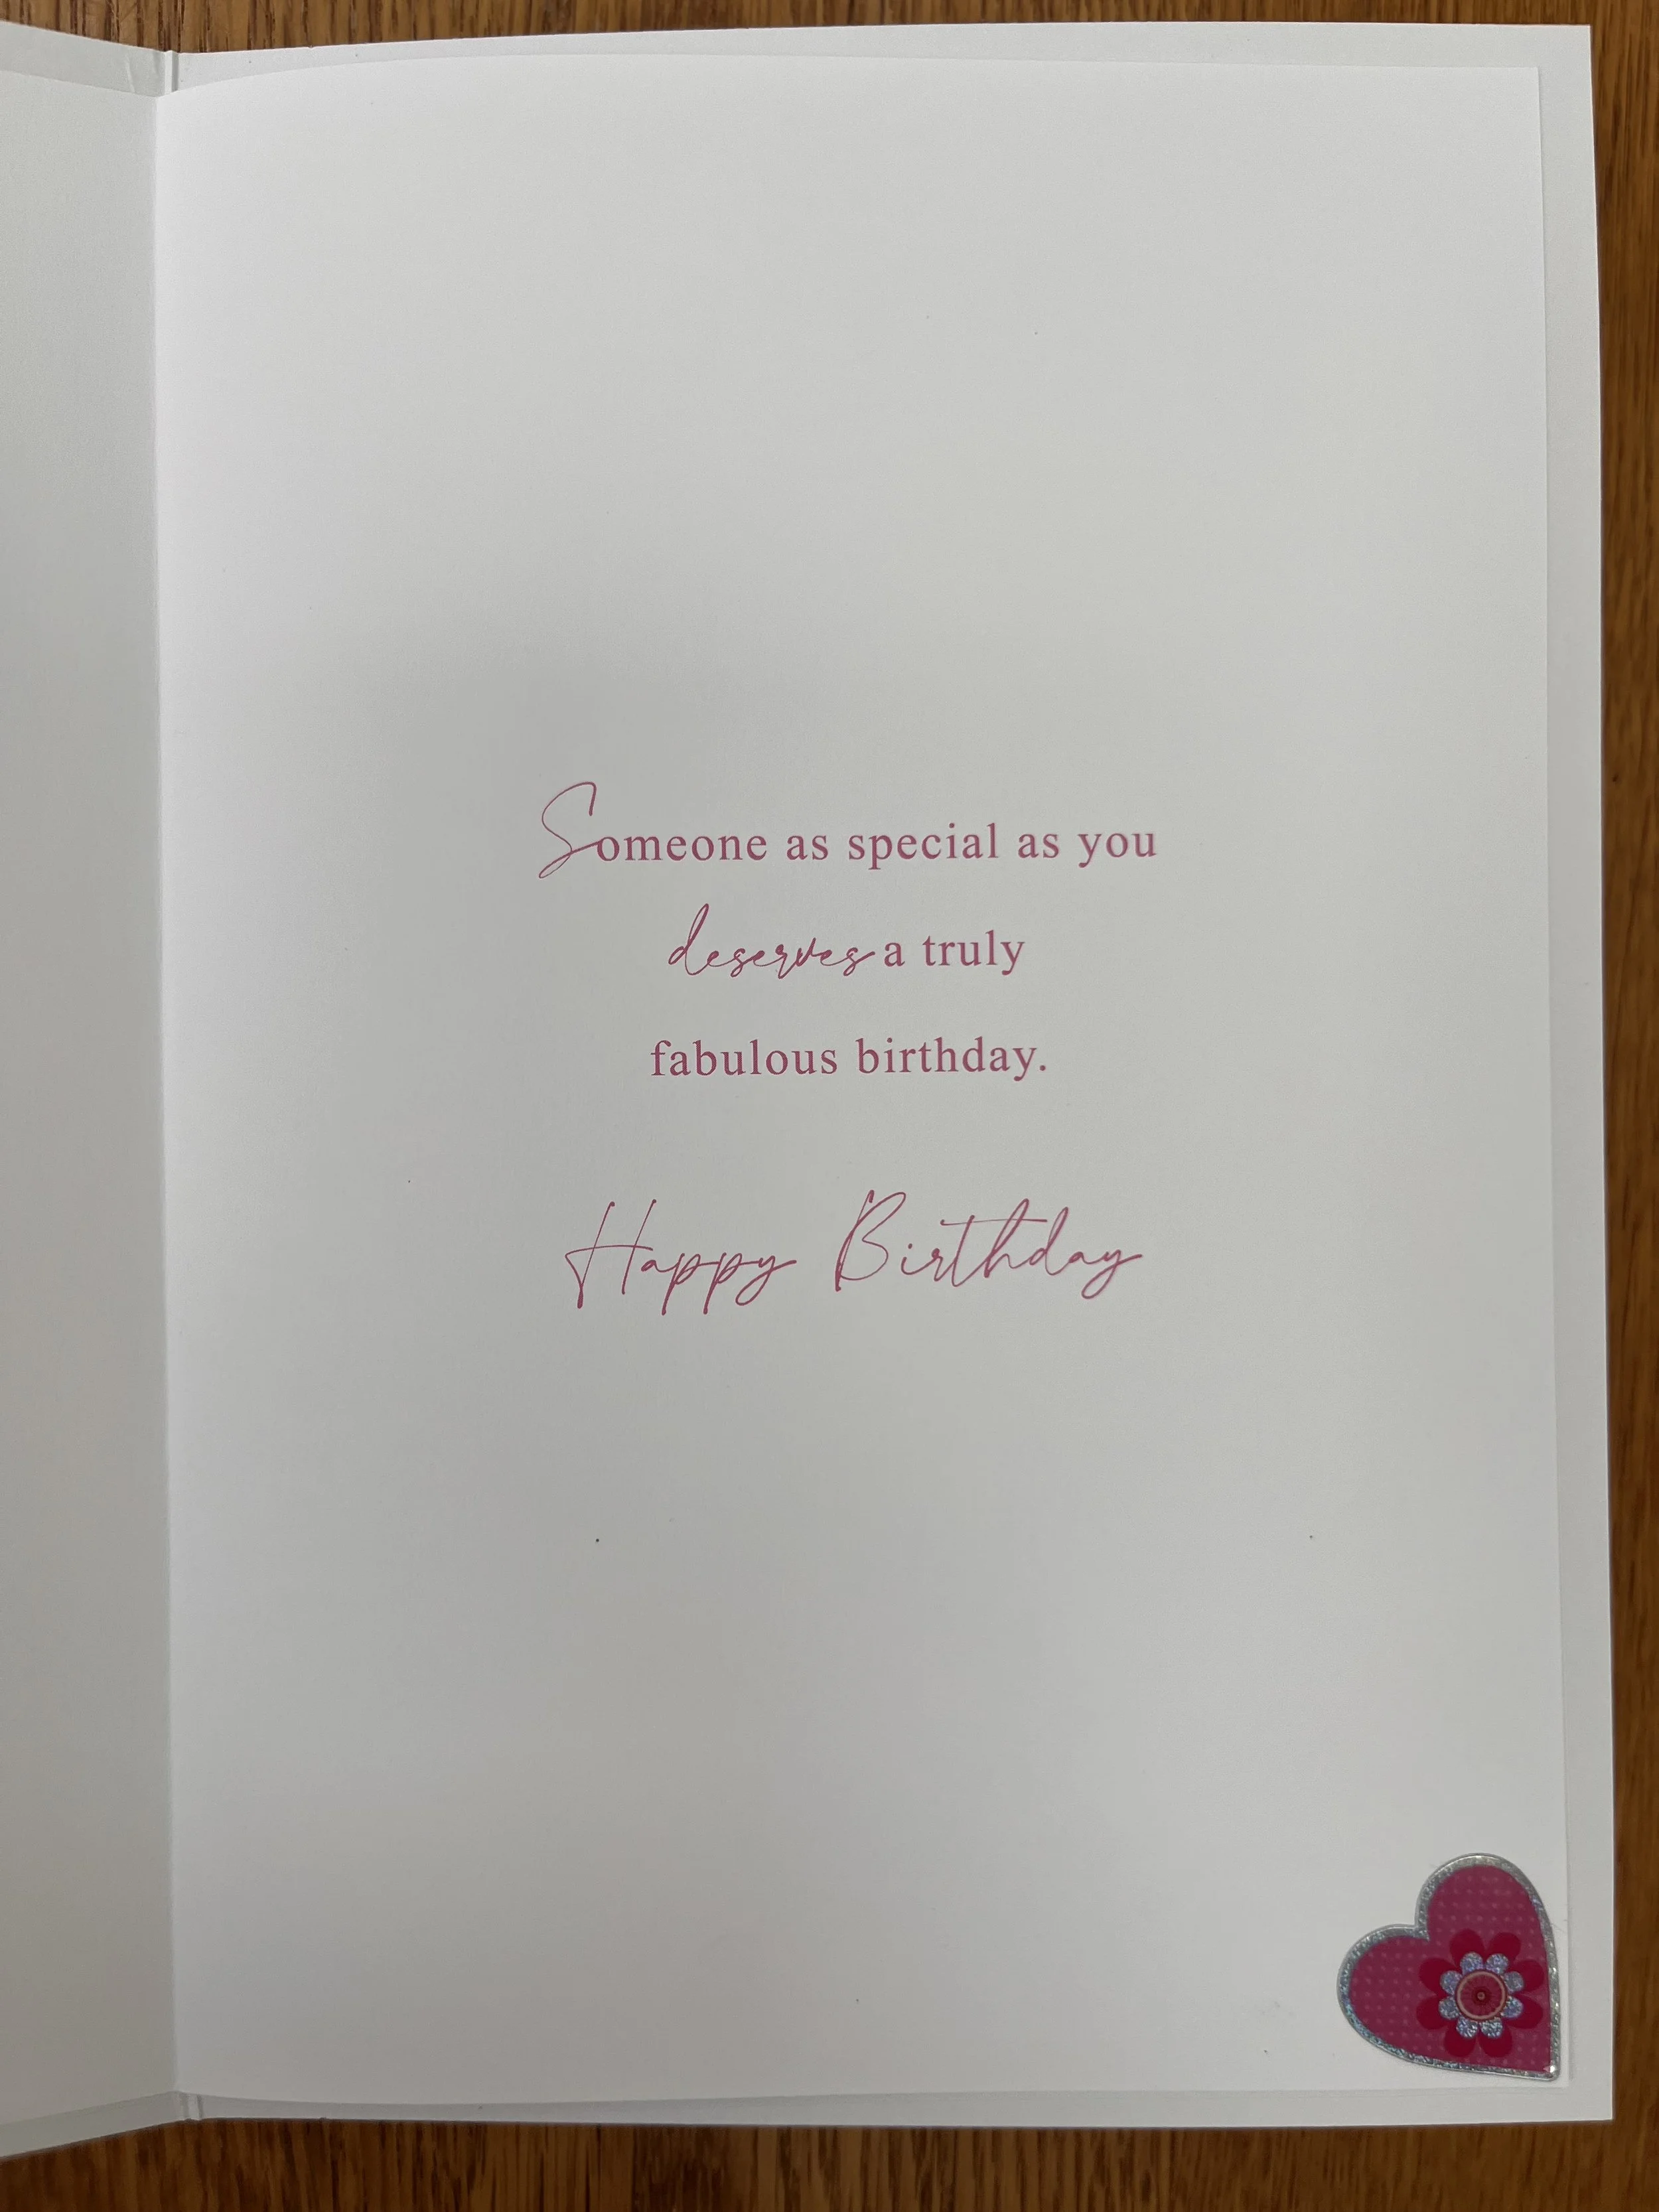 Someone as special as you
deserves a truly
fabulous birthday.
Happy Birthday